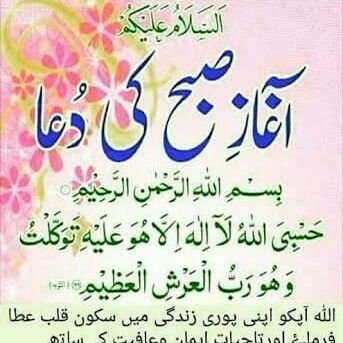 اَلسَّلَامُ عَلَيْكُمْ
آغازِ صبح کی دُعا
بِسْمِ اللهِ الرَّحْمٰنِ الرَّحِيْمِ
حَسْبِيَ اللهُ لَآ اِلٰهَ اِلَّا هُوَ عَلَيْهِ تَوَكَّلْتُ
وَهُوَ رَبُّ الْعَرْشِ الْعَظِيْمِ
اللہ آپکو اپنی پوری زندگی میں سکون قلب عطا
فرمائے اور تاحیات ایمان وعافیت کے ساتھ